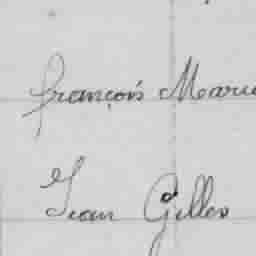 François Marie
Jean Gilles